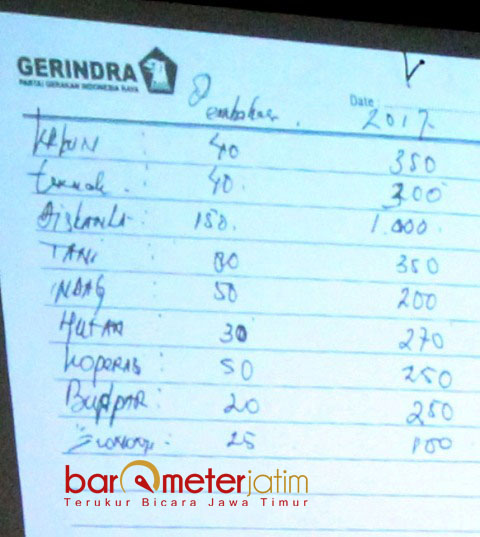 GERINDRA
PARTAI GERAKAN INDONESIA RAYA
Date
2017
40 350
ternak : 40. 300
: 150. 1.000.
TANI : 80 350
INDAG : 50 200
HUTAN : 30 270
KOPERASI : 50 250
BUDPAR : 20 250
: 25 100
barometerjatim
Terukur Bicara Jawa Timur